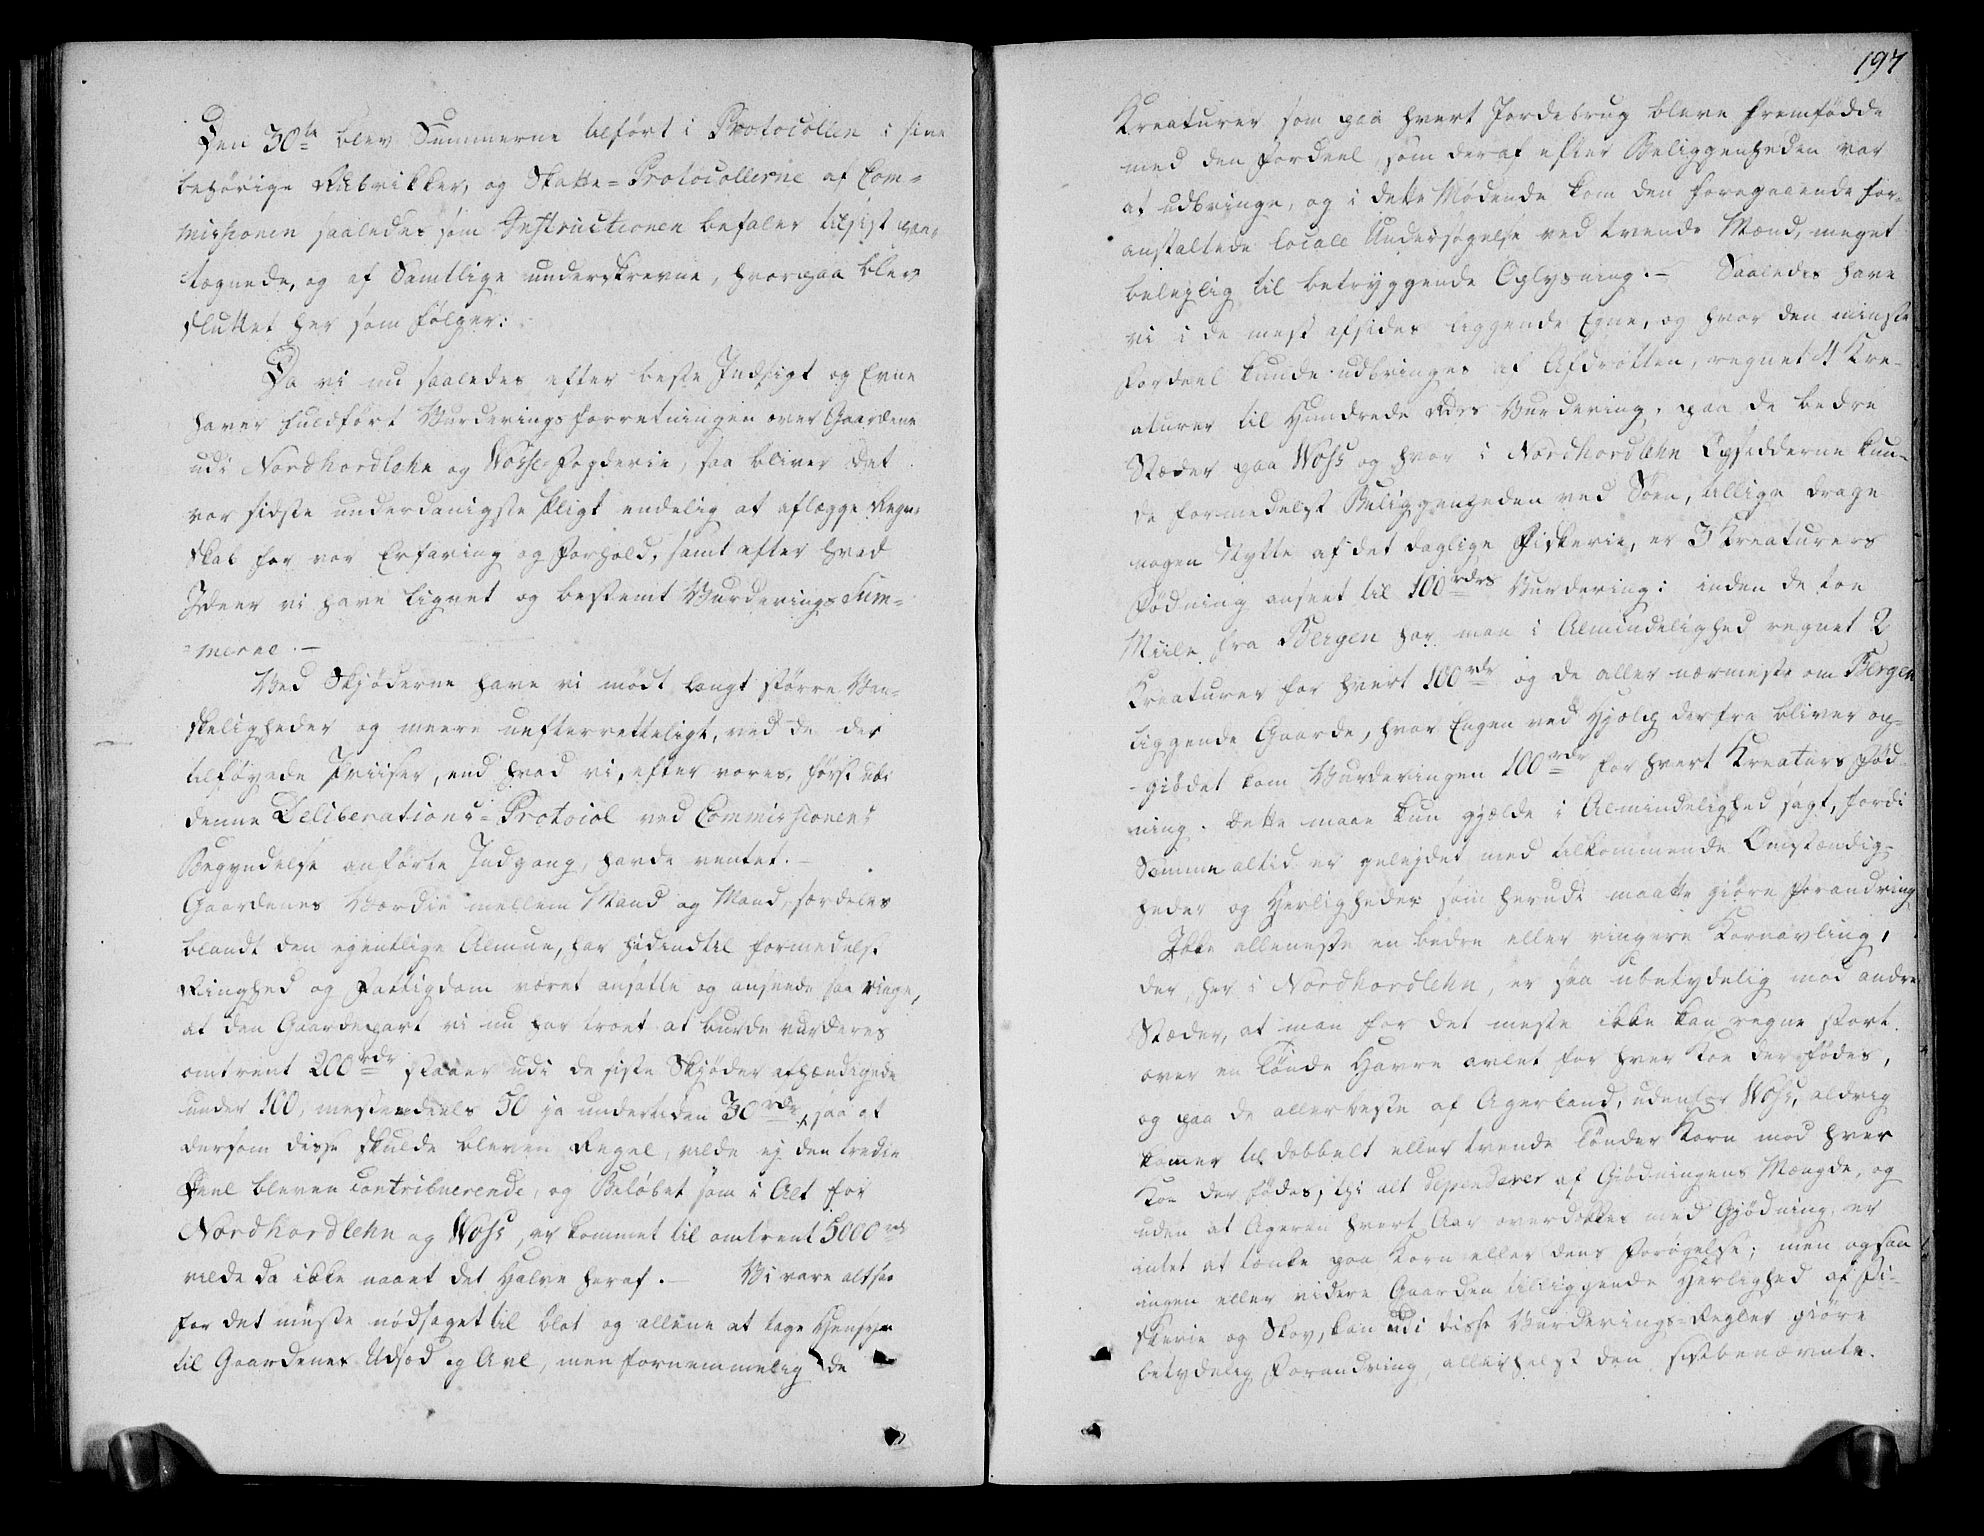 Den 30te blev Summerne tilført i Protocollen i sine
behørige Rubrikker, og Skatte=Protocollerne af Com=
missionen saaledes som Instructionen befaler tilsist paa=
tegnede, og af Samtlige underskrevne, hvorpaa blev
sluttet her som følger:
Da vi nu saaledes efter beste Indsigt og Evne
haver fuldført Vurderingsforretningen over Gaardene
udi Nordhordlehn og Wosse=fogderie, saa bliver det
vor sidste underdanigste Pligt endelig at aflægge Regn=
skab for vor Erfaring og Forhold, samt efter hvad
Ideer vi have lignet og bestemt Vurderings Sum=
=merne.—
Ved Skjøderne have vi mødt langt større Van=
skeligheder og meere uefterretteligt, ved de der
tilføyede Priiser, end hvad vi, efter vores, først udi
denne Deliberations=Protocol ved Commissionens
Begyndelse anførte Indgang, havde ventet.—
Gaardenes Værdie mellem Mand og Mand, særdeles
blandt den egentlige Almue, har hidindtil formedelst
Ringhed og Fattigdom været ansatte og anseede saa ringe,
at den Gaardepart vi nu har troet at burde vurderes
omtrent 200 rdr staaer udi de siste Skjøder afhændigede
under 100, mestendeels 50 ja undertiden 30 rdr, saa at
dersom disse skulde bleven Regel, vilde ej den tredie
Deel bleven contribuerende, og Beløbet som i Alt for
Nordhordlehn og Woss, er kommet til omtrent 5000 rd
vilde da ikke naaet det Halve heraf.— Vi vare altsaa
for det meste nødsaget til blot og allene at tage Hensyn
til Gaardenes Udsæd og Avl, men fornemmelig de
197
Kreaturer som paa hvert Jordebrug bleve fremfødde
med den Fordeel, som deraf efter Beliggenheden var
at udbringe, og i dette Mødende kom den foregaaende for=
anstaltede locale Undersøgelse ved tvende Mænd, meget
belejlig til betryggende Oplysning.— Saaledes have
vi i de mest afsides liggende Egne, og hvor den minste
Fordeel kunde udbringes af Afdrotten, regnet 4 Kre=
aturer til Hundrede Rdrs Vurdering, paa de bedre
Stæder paa Woss og hvor i Nordhordlehn Opsidderne kun=
de formedelst Beliggenheden ved Søen, tillige drage
nogen Nytte af det daglige Fiskerie, er 3 Kreaturers
Fødning anseet til 100 rdrs Vurdering: inden de toe
Miile fra Bergen har man i Almindelighed regnet 2
Kreaturer for hvert 100 rdr og de aller nærmeste om Bergen
liggende Gaarde, hvor Engen ved Hjelp derfra bliver op=
giødet kom Vurderingen 100 rdr for hvert Kreaturs Fød=
ning. Dette maae kun gjælde i Almindelighed sagt, fordi
Samme altid er geleydet med tilkommende Omstændig=
heder og Herligheder som herudi maatte giøre Forandring
Ikke alleneste en bedre eller ringere Kornavling,
der, her i Nordhordlehn, er saa ubetydelig mod andre
Stæder, at man for det meste ikke kan regne stort
over en Tønde Havre avlet for hver Koe der fødes,
og paa de allerbeste af Agerland, udenfor Woss, aldrig
komer til dobbelt eller tvende Tønder Korn mod hver
Koe der fødes, thi alt dependerer af Giødningens Mængde, og
uden at Ageren hvert Aar overdækkes med Gjødning, er
intet at tænke paa Korn eller dens Forøgelse; men ogsaa
ingen eller videre Gaarden tilliggende Herlighed af Fi=
skerie og Skov, kan udi disse Vurderings=Regler giøre
betydelig Forandring, allerhelst den sistbenævnte.